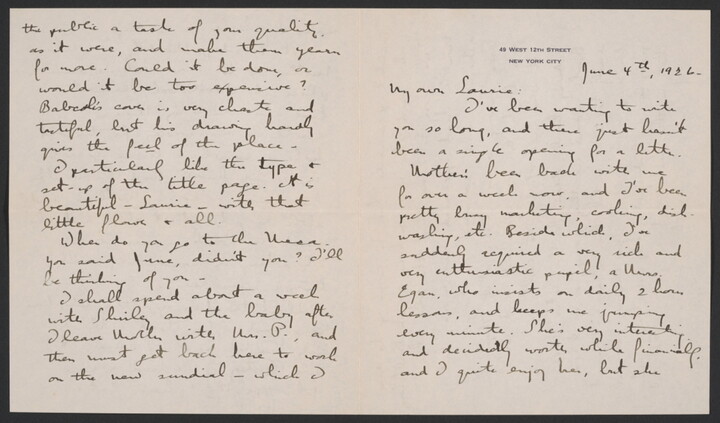 the public a taste of your quality,
as it were, and make them yearn
for more. Could it be done, or
would it be too expensive?
cover is very chaste and
tasteful, but his drawing hardly
gives the feel of the place -
I particularly like the type &
set-up of the title page. It is
beautiful - Laurie - with that
little flower & all.
When do you go to the
You said June, didn't you? I'll
be thinking of you -
I shall spend about a week
with Shirley and the baby after
I leave Mother with Mrs. P., and
then must get back here to work
on the new sundial - which I
49 WEST 12TH STREET
NEW YORK CITY
June 4th, 1926.
My own Laurie:
I've been wanting to write
you so long, and there just hasn't
been a single opening for a letter.
Mother's been back with me
for over a week now, and I've been
pretty busy marketing, cooking, dish
washing, etc. Beside which, I've
suddenly acquired a very rich and
very enthusiastic pupil, a Mrs.
Egan, who insists on daily 2 hour
lessons, and keeps me jumping
every minute. She's very interesting
and decidedly worth while financially,
and I quite enjoy her, but she